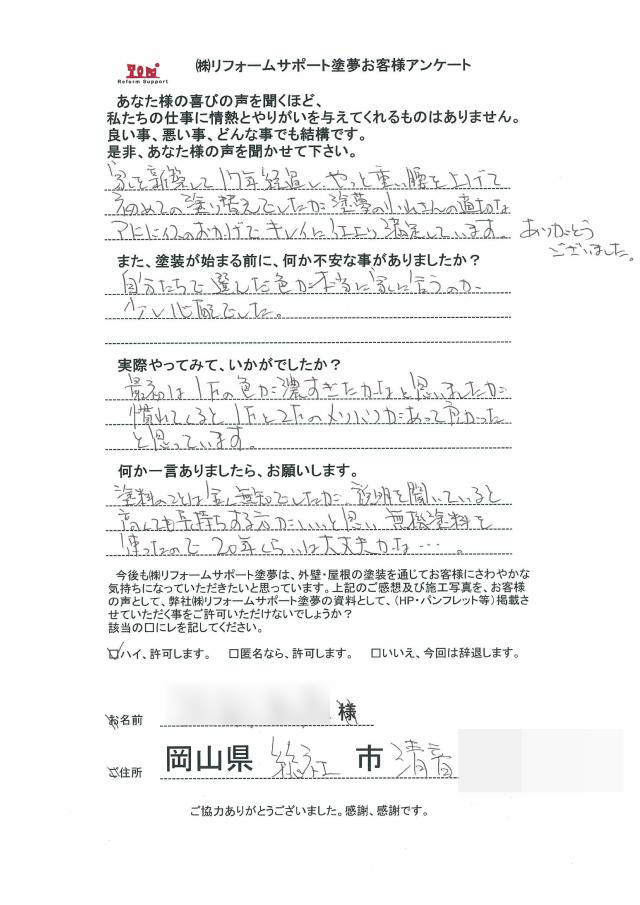 TOM
Reform Support
㈱リフォームサポート塗夢お客様アンケート
あなた様の喜びの声を聞くほど、
私たちの仕事に情熱とやりがいを与えてくれるものはありません。
良い事、悪い事、どんな事でも結構です。
是非、あなた様の声を聞かせて下さい。
家を新築して17年経過し やっと重い腰を上げて
初めての塗り替えでしたが 塗夢の小山さんの適切な
アドバイスのおかげで キレイに仕上り 満足しています。
ありがとう
ございました。
また、塗装が始まる前に、何か不安な事がありましたか？
自分たちで 選んだ色が 本当に 家に 合うのか
少し心配でした。
実際やってみて、いかがでしたか？
最初は 1Fの色が 濃すぎたかなと 思いましたが
慣れてくると 1Fと2Fの メリハリがあって 良かった
と思っています。
何か一言ありましたら、お願いします。
塗料のことは 全く無知でしたが、説明を聞いていると
高くても 長持ちする方が いいと思い 無機塗料を
使ったので 20年くらいは 大丈夫かな…。
今後も㈱リフォームサポート塗夢は、外壁・屋根の塗装を通じてお客様にさわやかな
気持ちになっていただきたいと思っています。上記のご感想及び施工写真を、お客様
の声として、弊社㈱リフォームサポート塗夢の資料として、（HP・パンフレット等）掲載さ
せていただく事をご許可いただけないでしょうか？
該当の口にレを記してください。
☑ハイ、許可します。 □匿名なら、許可します。 □いいえ、今回は辞退します。
お名前 様
ご住所 岡山県 総社 市 清音
ご協力ありがとうございました。感謝、感謝です。